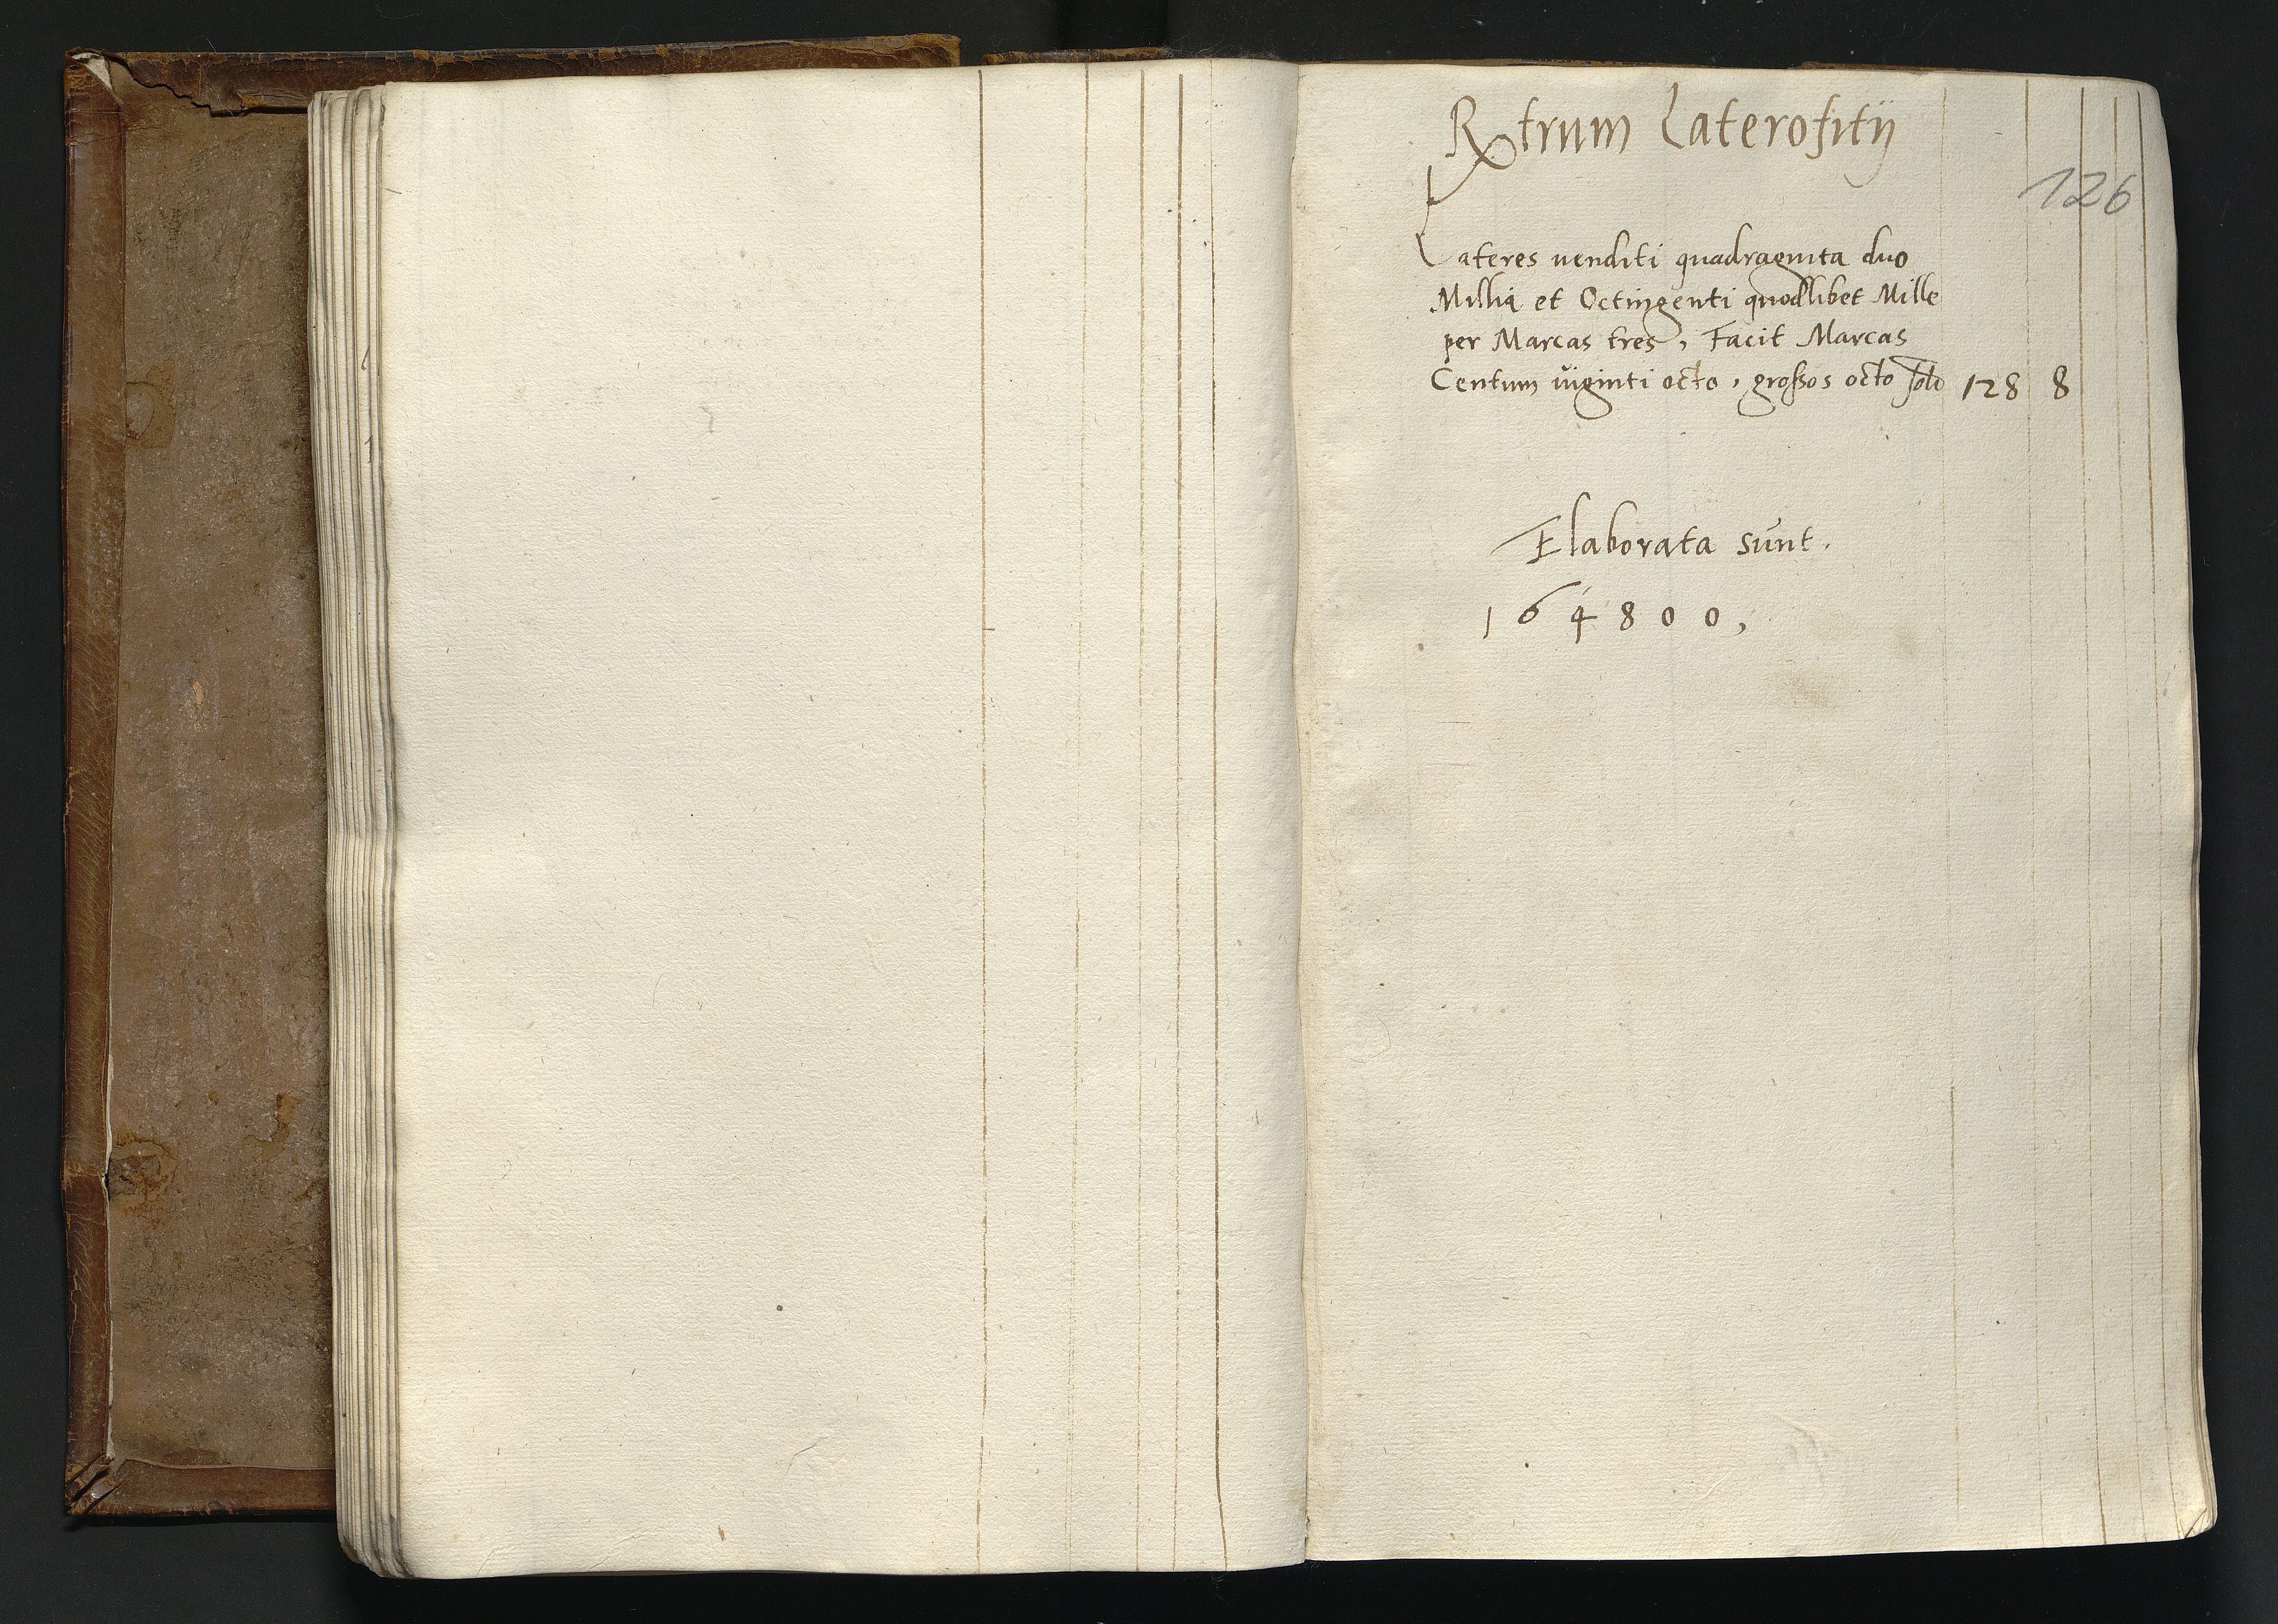 Rxtrum Laterofitij
126
Lateres venditi quadraginta duo
Millia et Octingenti quodlibet Mille
per Marcas tres, Facit Marcas
Centum viginti octo, großos octo 128 8
Elaborata sunt.
164800,